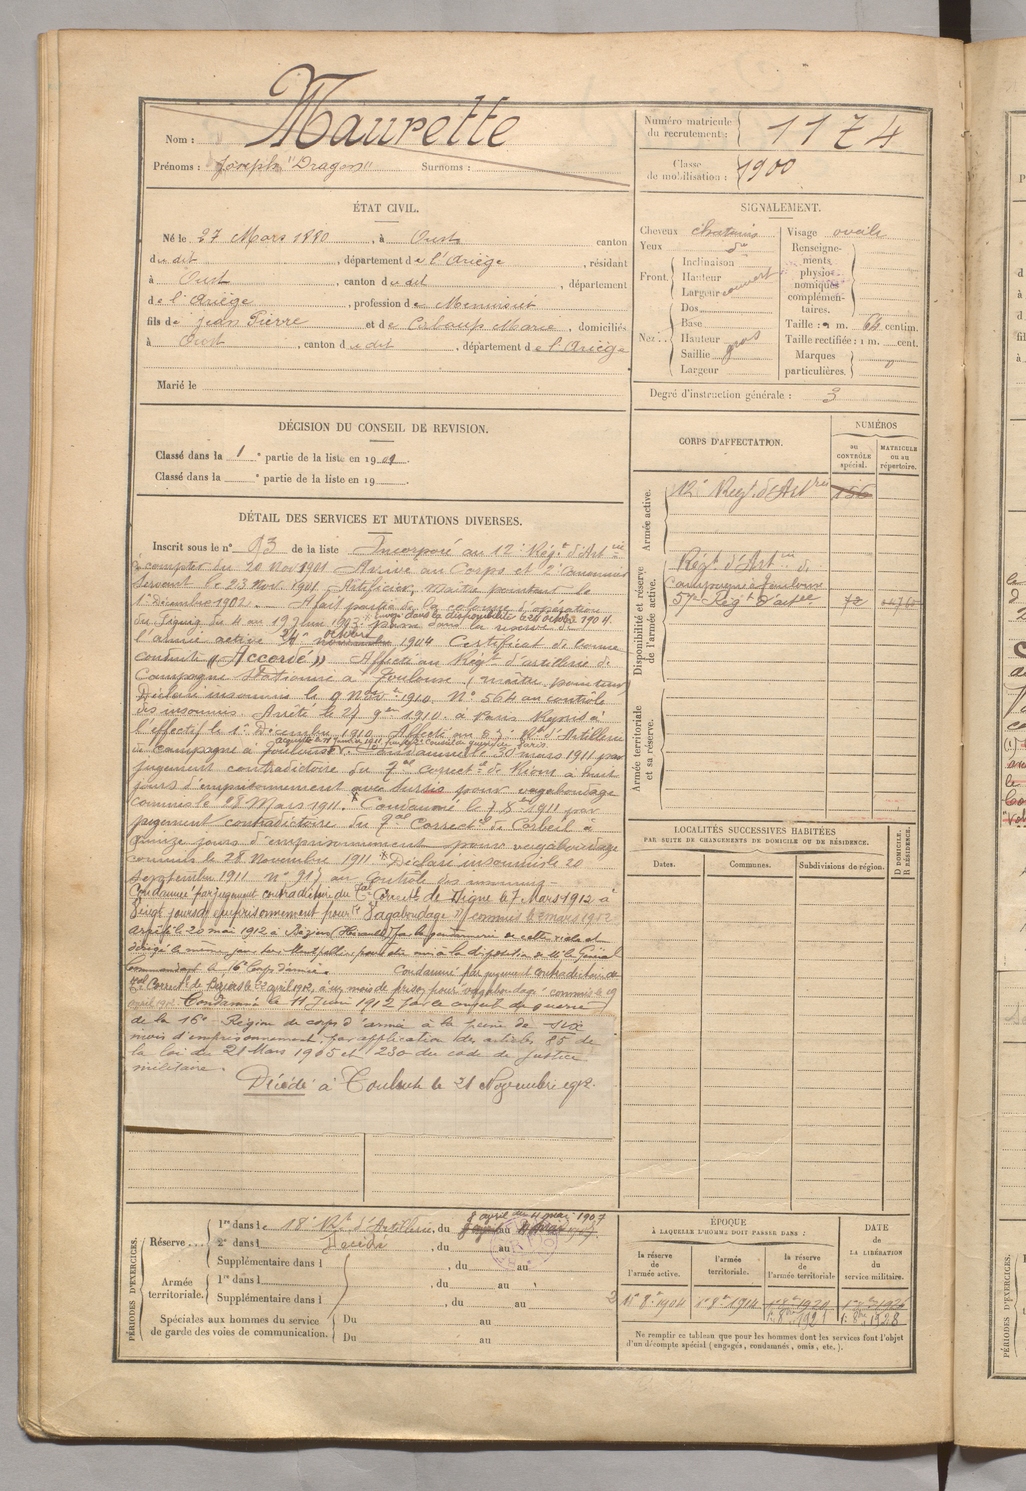 Nom : Maurette
Prénoms : Joseph "Dragon" Surnoms :
Numéro matricule du recrutement : 1174
Classe de mobilisation : 1900
ÉTAT CIVIL.
Né le 27 Mars 1880, à Oust canton
du dit, département de l'Ariège, résidant
à Oust, canton du dit, département
de l'Ariège, profession de Menuisier
fils de Jean Pierre et de Carbaup Marie, domiciliés
à Oust, canton du dit, département de l'Ariège
Marié le
SIGNALEMENT.
Cheveux chatains
Yeux do
Front. Inclinaison
Hauteur
Largeur couvert
Nez. Dos
Base
Hauteur gros
Saillie
Largeur
Visage ovale
Renseignements physionomiques complémentaires.
Taille : 1 m. 64 centim.
Taille rectifiée : 1 m. cent.
Marques particulières. 0
Degré d'instruction générale : 3
DÉCISION DU CONSEIL DE REVISION.
Classé dans la 1e partie de la liste en 1901.
Classé dans la e partie de la liste en 19
CORPS D'AFFECTATION.
NUMÉROS
au CONTRÔLE spécial.
MATRICULE ou au répertoire.
Armée active.
12e Régt d'Artrie 156
Disponibilité et réserve de l'armée active.
Régt d'Artrie de
Campagne à Toulouse
57e Régt d'artie 72
Armée territoriale et sa réserve.
DÉTAIL DES SERVICES ET MUTATIONS DIVERSES.
Inscrit sous le n° 93 de la liste Incorporé au 12e Régt d'Artrie
à compter du 20 Nov 1901 Arrivé au Corps et 2e Canonnier
servant le 23 Nov. 1901. Artificier, Maître pointeur le
1er Décembre 1902. A fait partie de la colonne d'opération
du Figuig du 4 au 19 Juin 1903. Envoi dans la disponibilité le octobre 1904.
Passé dans la réserve de
l'armée active le octobre novembre 1904 Certificat de bonne
conduite "Accordé" Affecté au Régt d'artillerie de
Campagne stationné à Toulouse (maître pointeur)
Déclaré insoumis le 9 Novbre 1910. N° 564 au contrôle
des insoumis. Arrêté le 27 9bre 1910. à Paris Rayé à
l'effectif le 1er Décembre 1910. Affecté au 57e Rgt d'Artillerie
de campagne à Toulouse. Condamné le 30 mars 1911 par
jugement contradictoire du Tal correctel de Riom à huit
jours d'emprisonnement avec sursis pour vagabondage
commis le 28 Mars 1911. Condamné le 7 Xbre 1911 par
jugement contradictoire du Tal Correctel de Corbeil à
quinze jours d'emprisonnement pour vagabondage
commis le 28 Novembre 1911. Déclaré insoumis le 20
septembre 1911 n° 917 au Contrôle des insoumis.
Condamné par jugement contradictoire du Tal Correctel de Digne le 7 Mars 1912 à
Vingt jours d'emprisonnement pour Vagabondage commis le 2 mars 1912
arrêté le 20 mai 1912 à Béziers (Hérault) par la gendarmerie de cette ville et
dirigé le même jour sur Montpellier pour être mis à la disposition de Mr le Général
Commandant le 16e Corps d'armée. Condamné par jugement contradictoire du
Tal Correctel de avril 1912, à un mois de prison pour vagabondage commis le 19
avril 1912. Condamné le 11 Juin 1912 par le conseil de guerre
de la 16e Région de corps d'armée à la peine de six
mois d'emprisonnement, par application des articles 85 de
la loi du 21 Mars 1905 et 230 du code de justice
militaire.
Décédé à Toulouse le 21 Novembre 1912.
LOCALITÉS SUCCESSIVES HABITÉES
PAR SUITE DE CHANGEMENTS DE DOMICILE OU DE RÉSIDENCE.
Dates. Communes. Subdivisions de région.
D DOMICILE. R RÉSIDENCE.
PÉRIODES D'EXERCICES.
8 avril au 4 mai 1907
Réserve... 1re dans le 18e Rgt d'Artillerie, du au
2e dans l Décédé, du au
Supplémentaire dans l, du au
Armée territoriale. 1re dans l, du au
Supplémentaire dans l, du au
Spéciales aux hommes du service de garde des voies de communication. Du au
Du au
ÉPOQUE
À LAQUELLE L'HOMME DOIT PASSER DANS :
la réserve de l'armée active.
l'armée territoriale.
la réserve de l'armée territoriale
DATE de LA LIBÉRATION du service militaire.
1er 8bre 1904 1er 8bre 1914 1er 8bre 1920 1er 8bre 1926
1er 8bre 1921 1er 8bre 1928
Ne remplir ce tableau que pour les hommes dont les services font l'objet
d'un décompte spécial (engagés, condamnés, omis, etc.).